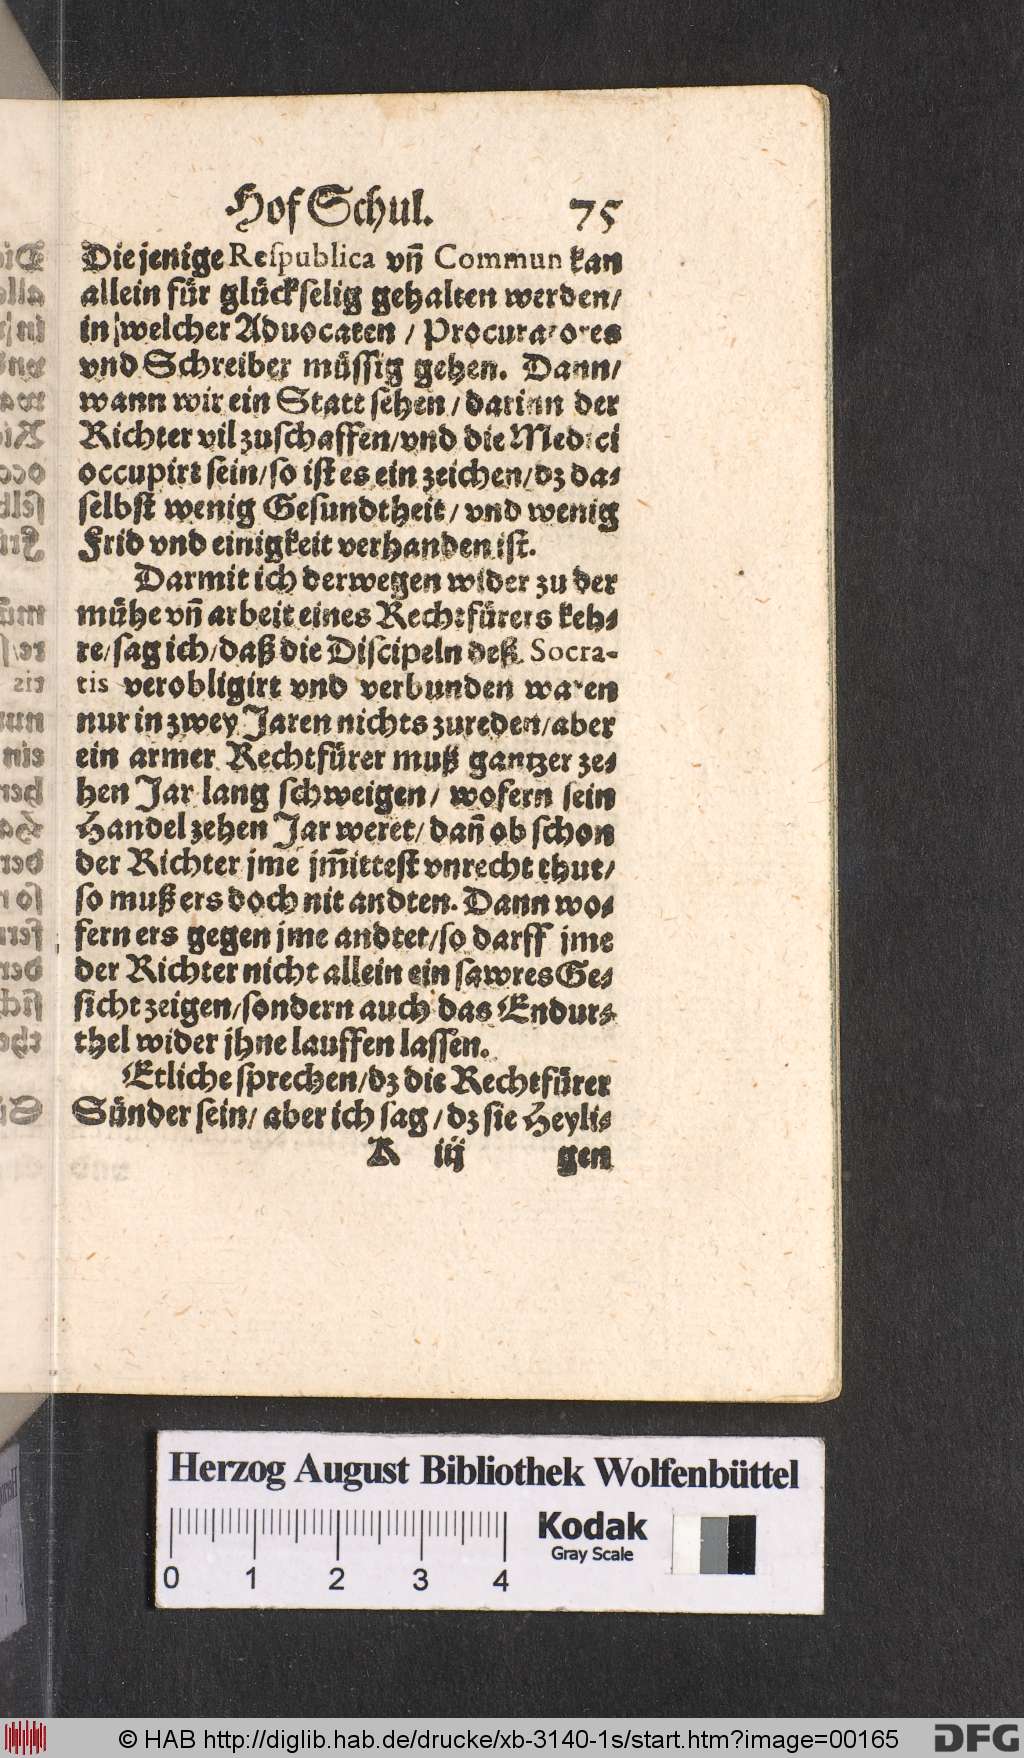 Hof Schul. 75
Die jenige Respublica vñ Commun kan
allein für glückselig gehalten werden/
in welcher Aduocaten / Procuratores
vnd Schreiber müssig gehen. Dann/
wann wir ein Statt sehen / darinn der
Richter vil zuschaffen/vnd die Medici
occupirt sein/so ist es ein zeichen/dz da-
selbst wenig Gesundtheit / vnd wenig
Frid vnd einigkeit verhanden ist.
Darmit ich derwegen wider zu der
mühe vñ arbeit eines Rechtfürers keh-
re/sag ich/daß die Discipeln deß Socra-
tis verobligirt vnd verbunden waren
nur in zwey Jaren nichts zureden/aber
ein armer Rechtfürer muß gantzer ze-
hen Jar lang schweigen/ wofern sein
Handel zehen Jar weret/ dañ ob schon
der Richter jme jm̃ittest vnrecht thut/
so muß ers doch nit andten. Dann wo-
fern ers gegen jme andtet/so darff jme
der Richter nicht allein ein sawres Ge-
sicht zeigen/sondern auch das Endur-
thel wider jhne lauffen lassen.
Etliche sprechen/dz die Rechtfürer
Sünder sein/ aber ich sag / dz sie Heyli-
K iij gen
Herzog August Bibliothek Wolfenbüttel
Kodak
Gray Scale
0 1 2 3 4
© HAB http://diglib.hab.de/drucke/xb-3140-1s/start.htm?image=00165
DFG